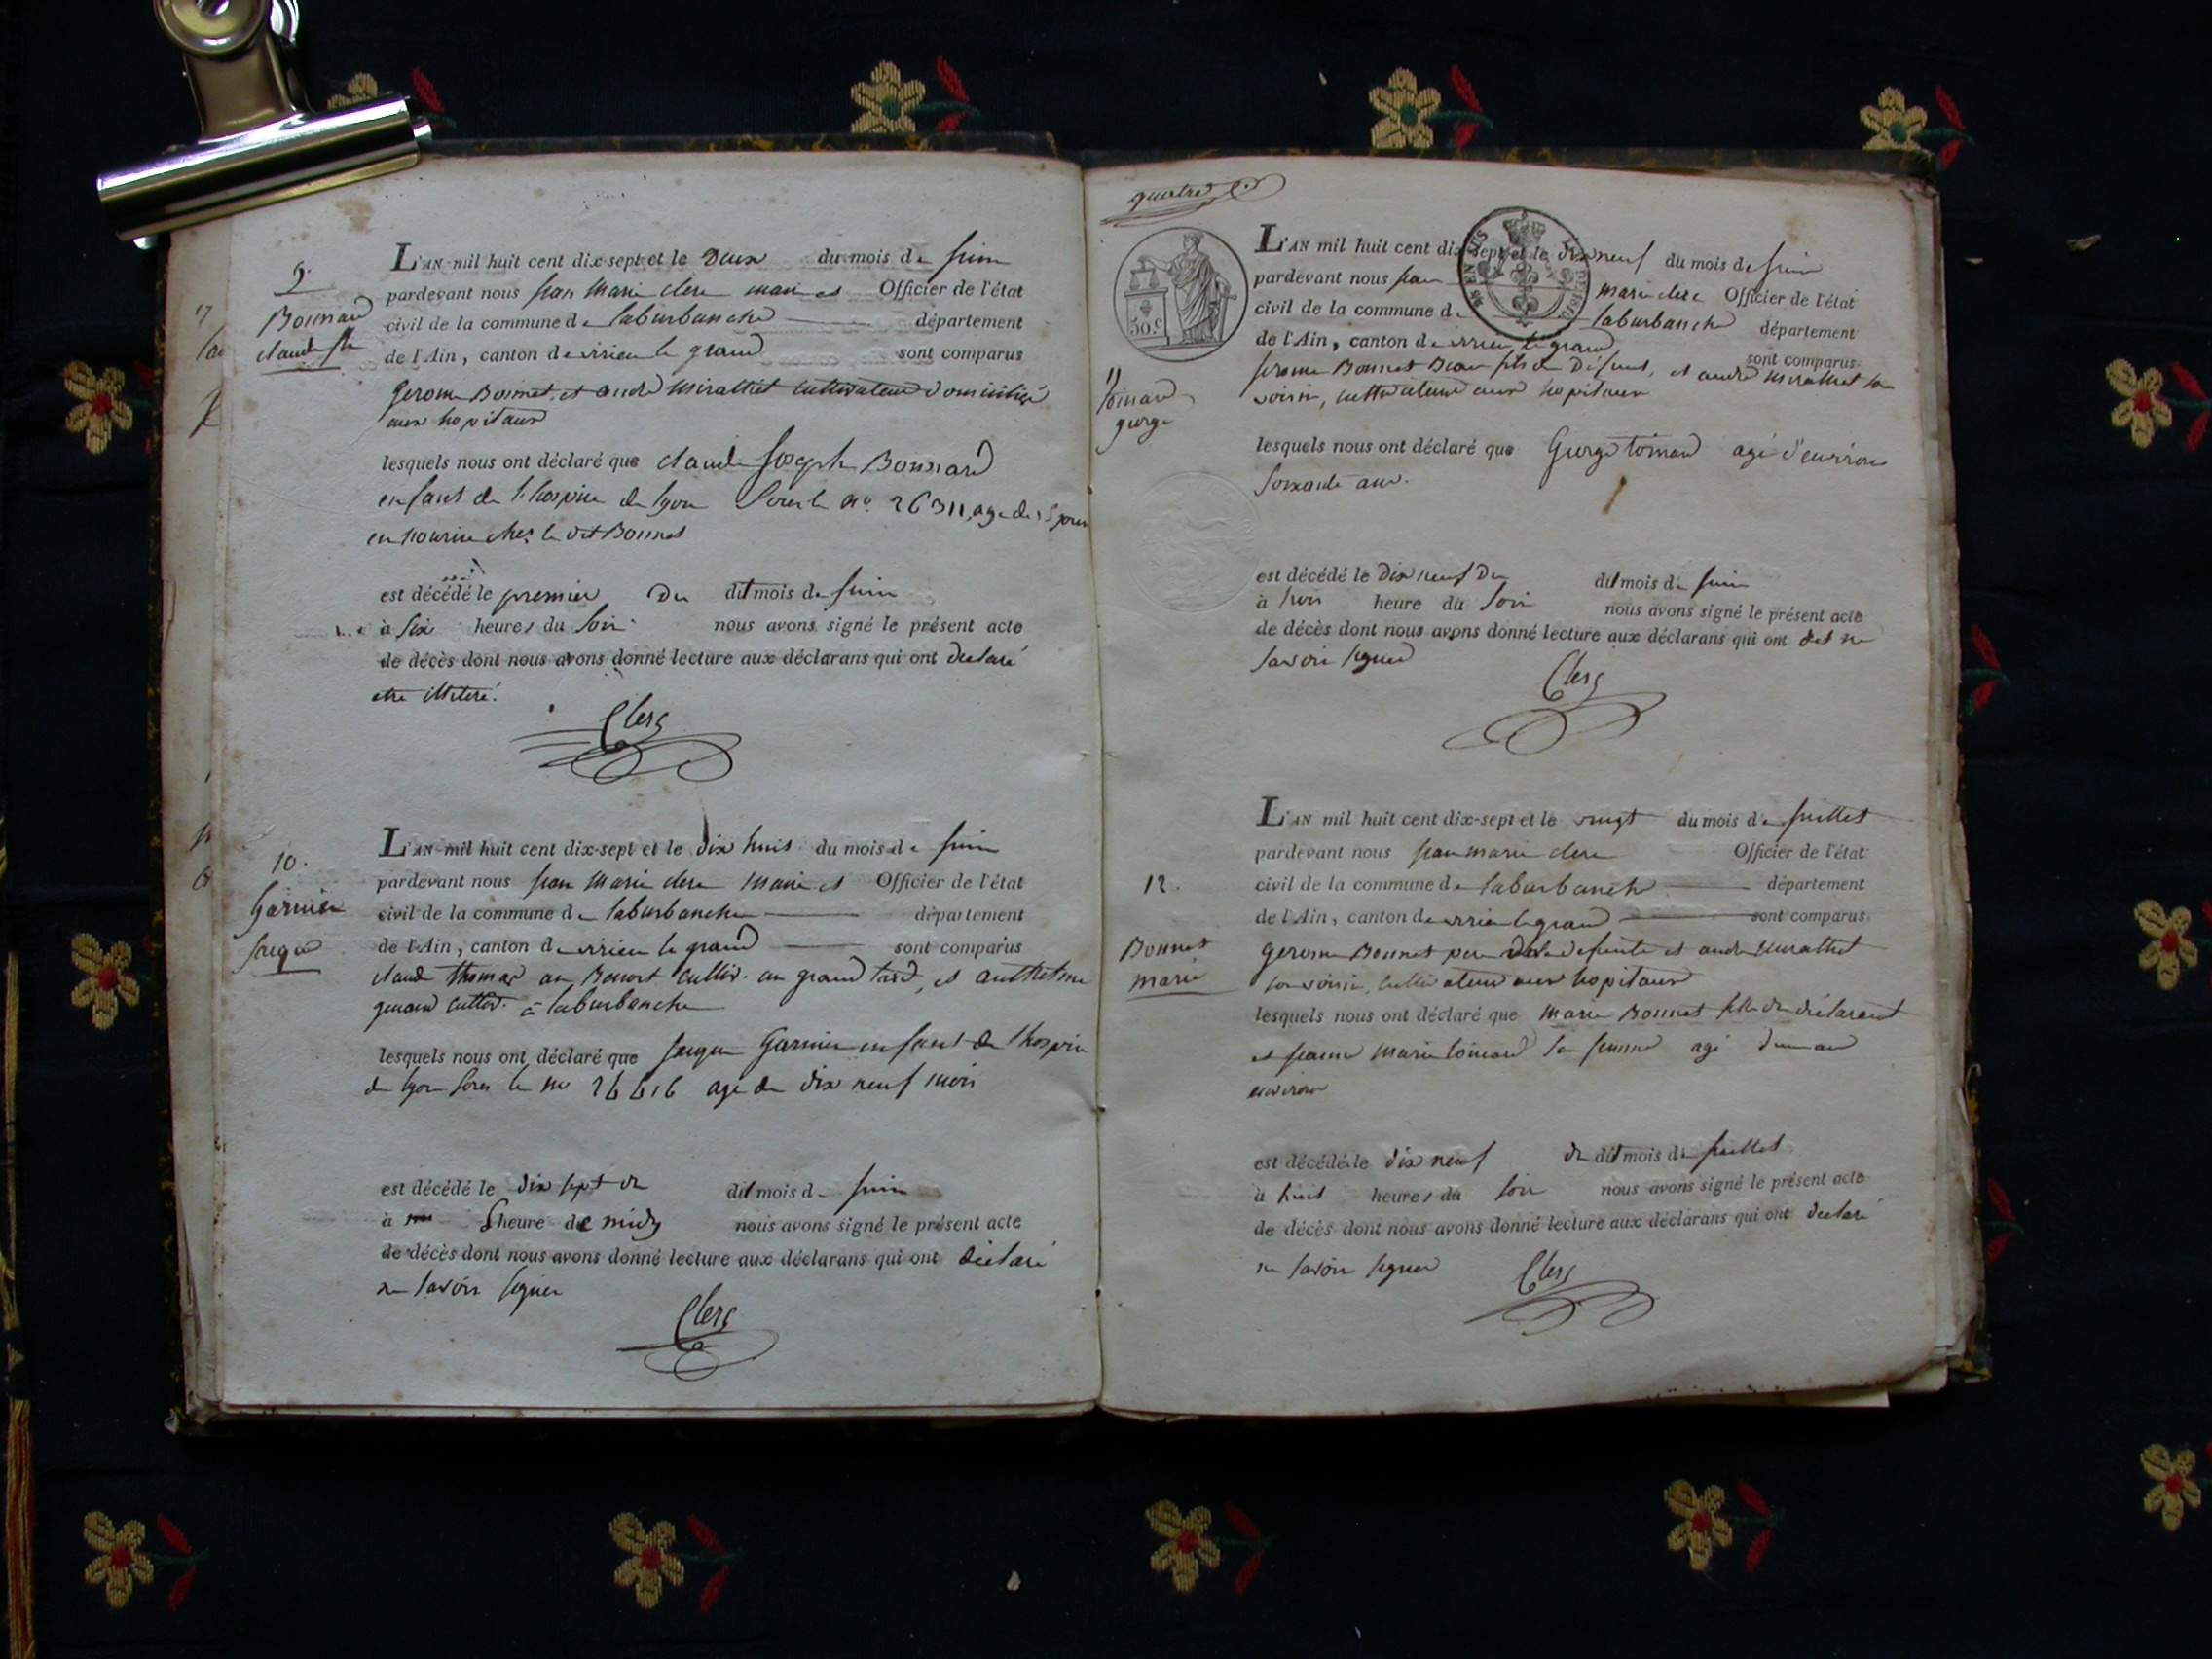 9.
Bonnard
claude jh
L'AN mil huit cent dix-sept et le deux du mois de juin
pardevant nous jean marie clerc maire et Officier de l'état
civil de la commune de laburbanche département
de l'Ain, canton de virieu le grand sont comparus
gerome Bonnet, et andré mirallet cultivateurs domiciliés
aux hopitaux
lesquels nous ont déclaré que claude joseph Bonnard
enfant de l'hospice de lyon sous le no. 26311, agé de 15 jours
en nourice chez le dit Bonnet
est décédé le premier du dit mois de juin
à six heures du soir nous avons signé le présent acte
de décès dont nous avons donné lecture aux déclarans qui ont declaré
etre illiteré.
Clerc
10.
Garnier
jaque
L'AN mil huit cent dix-sept et le dix huit du mois de juin
pardevant nous jean marie clerc maire et Officier de l'état
civil de la commune de laburbanche département
de l'Ain, canton de virieu le grand sont comparus
claude thomas au Benoit cultiv. au grand tard, et
cultiv. à laburbanche
lesquels nous ont déclaré que jaque Garnier enfant de l'hospice
de lyon sous le no 26616 agé de dix neuf mois
est décédé le dix sept du dit mois de juin
à l'heure de midy nous avons signé le présent acte
de décès dont nous avons donné lecture aux déclarans qui ont déclaré
ne savoir signer
Clerc
quatre
30.C
11
toinard
george
L'AN mil huit cent dix-sept et le dix neuf du mois de juin
pardevant nous jean marie clerc Officier de l'état
civil de la commune de laburbanche département
de l'Ain, canton de virieu le grand sont comparus
jerome Bonnet Beau fils du défunt, et andré mirallet son
voisin, cultivateurs aux hopitaux
lesquels nous ont déclaré que George toinard agé d'environ
soixante ans.
est décédé le dix neuf du dit mois de juin
à trois heure du soir nous avons signé le présent acte
de décès dont nous avons donné lecture aux déclarans qui ont dit ne
savoir signer
Clerc
12.
Bonnet
marie
L'AN mil huit cent dix-sept et le vingt du mois de juillet
pardevant nous jean marie clerc Officier de l'état
civil de la commune de laburbanche département
de l'Ain, canton de virieu le grand sont comparus
gerome Bonnet pere de la defunte et andré mirallet
son voisin, cultivateurs aux hopitaux
lesquels nous ont déclaré que marie Bonnet fille du déclarant
et jeanne marie toinard sa femme agé d'un an
environ
est décédé le dix neuf du dit mois de juillet
à huit heures du soir nous avons signé le présent acte
de décès dont nous avons donné lecture aux déclarans qui ont declaré
ne savoir signer
Clerc